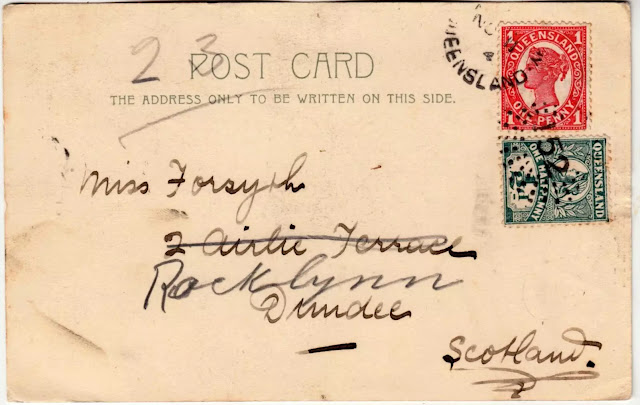 23
POST CARD
THE ADDRESS ONLY TO BE WRITTEN ON THIS SIDE.
QUEENSLAND
QUEENSLAND
1 1
ONE PENNY
QUEENSLAND
ONE HALFPENNY
Miss Forsyth
2 Airlie Terrace
Rocklynn
Dundee
Scotland.